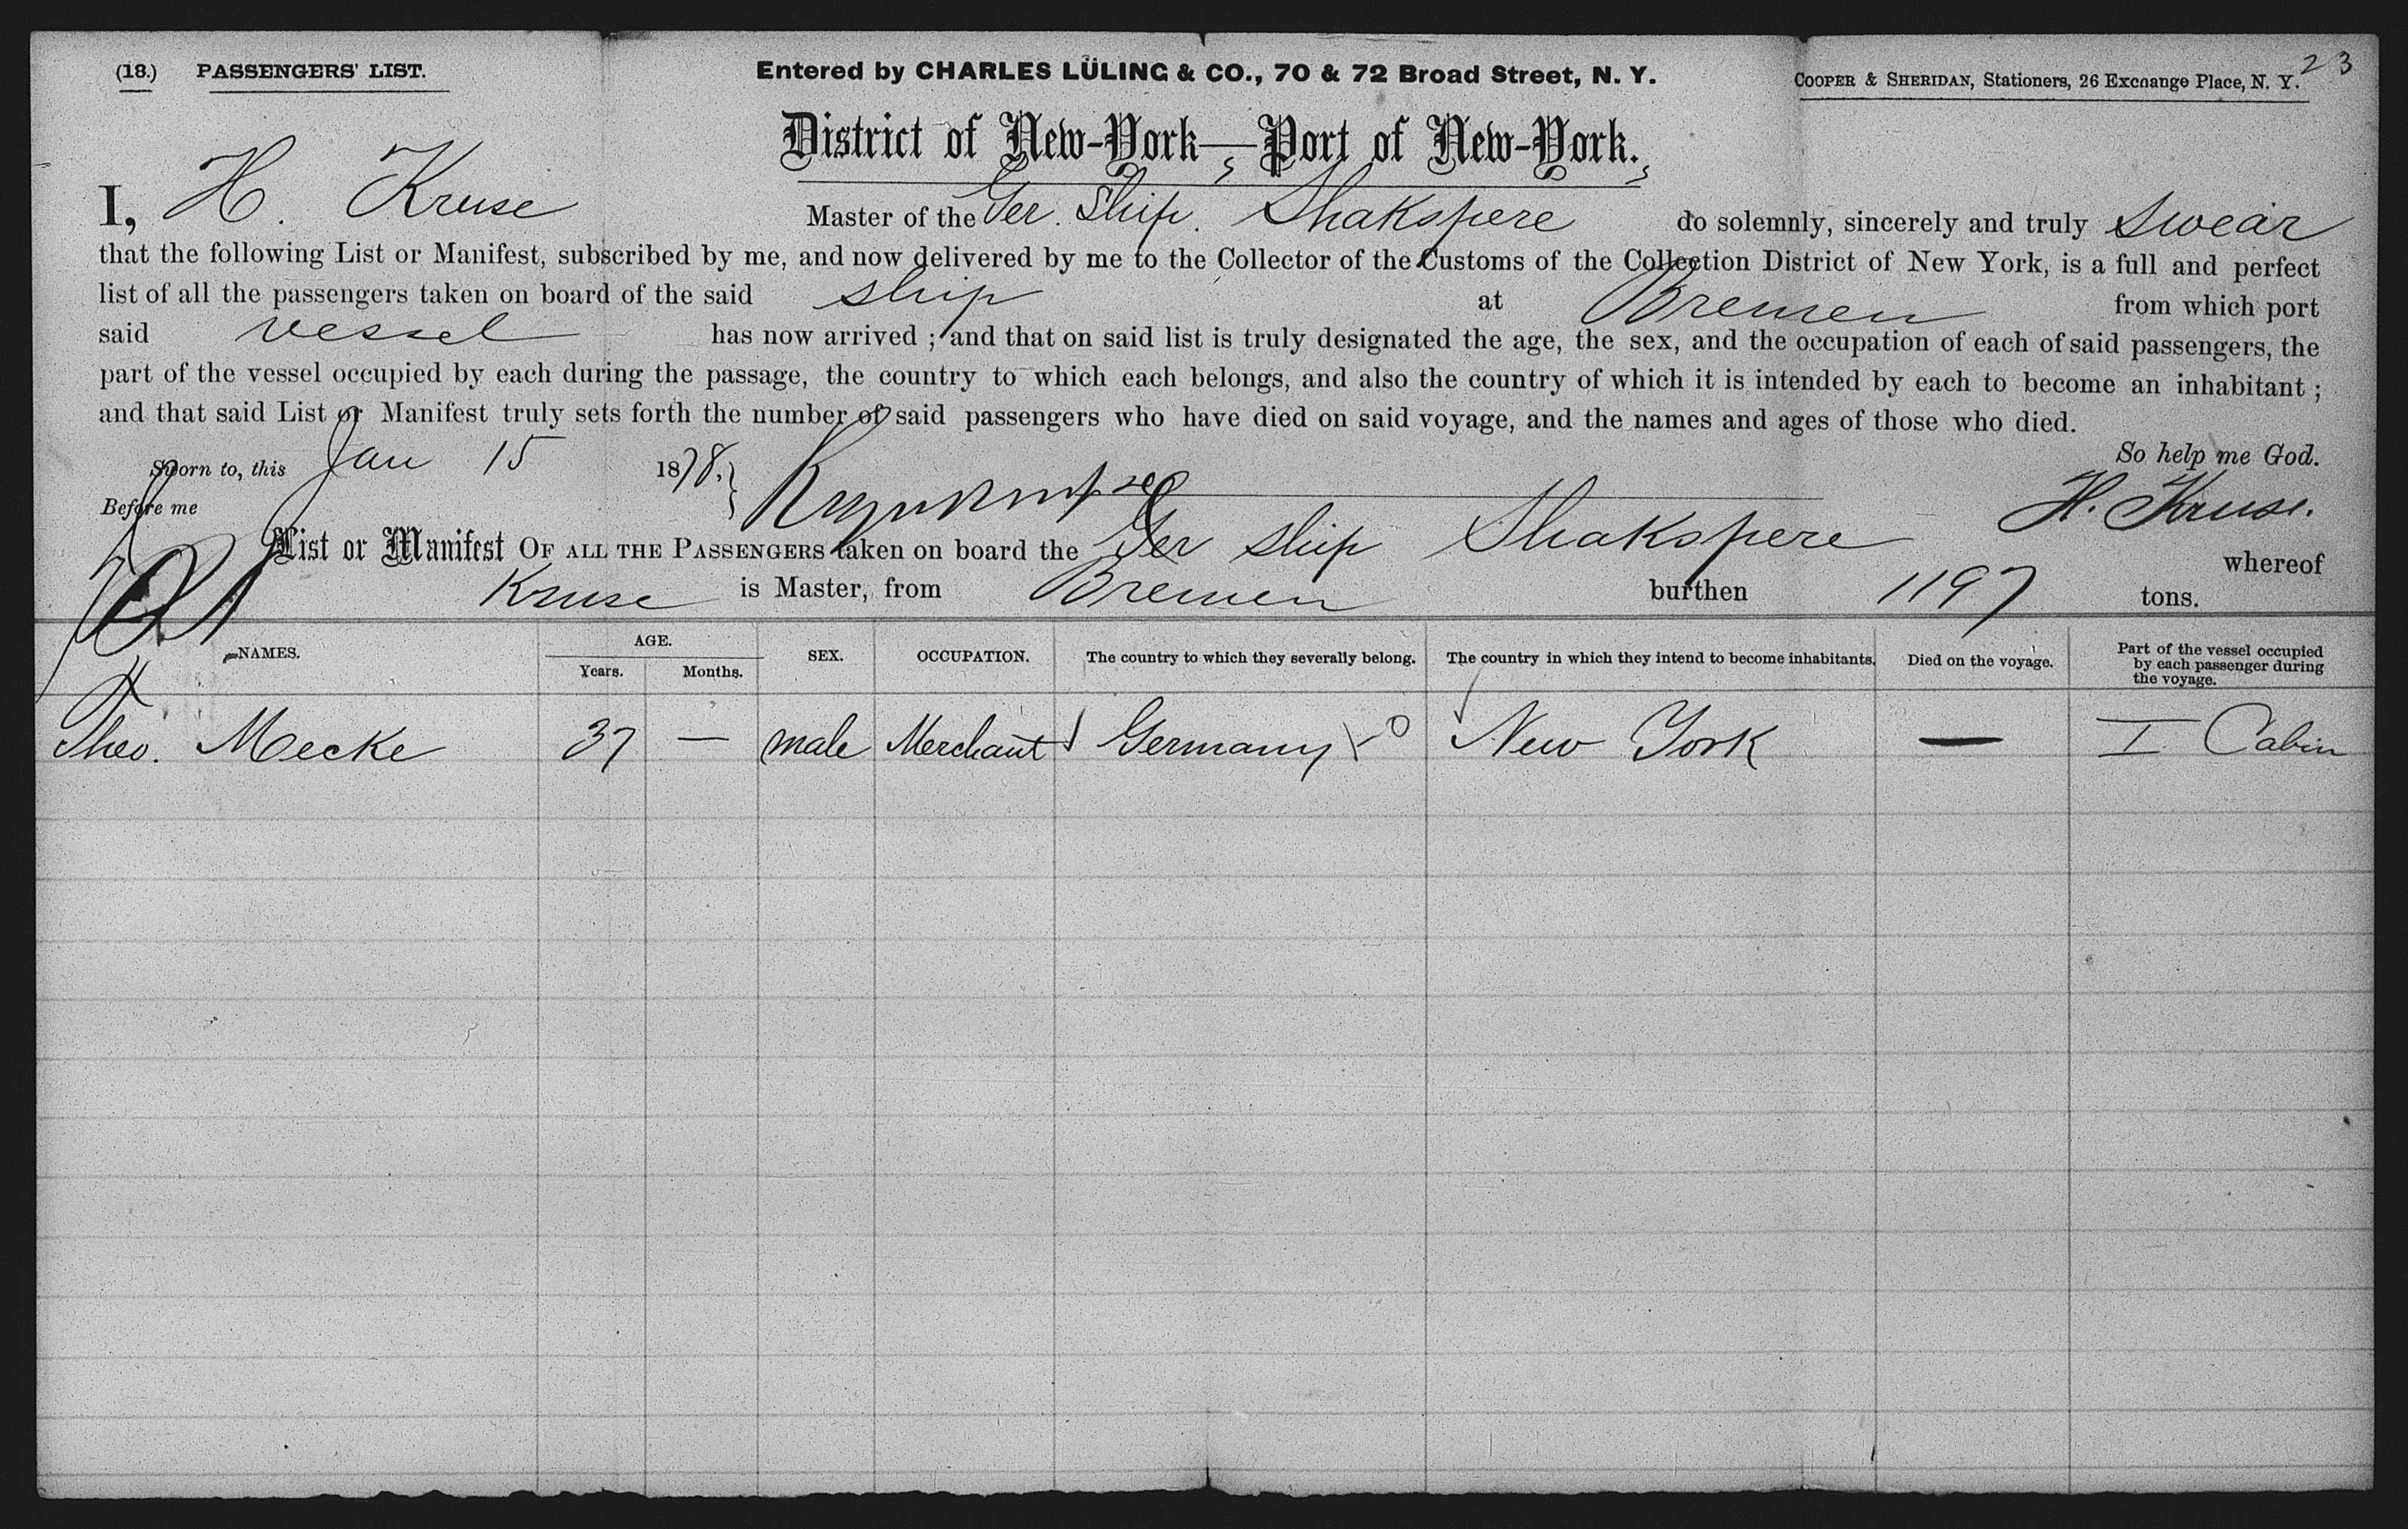 (18.) PASSENGERS' LIST.
Entered by CHARLES LÜLING & CO., 70 & 72 Broad Street, N. Y.
COOPER & SHERIDAN, Stationers, 26 Exchange Place, N. Y.
23
District of New-York—Port of New-York.
I, H. Kruse Master of the Ger. Ship. Shakspere do solemnly, sincerely and truly swear
that the following List or Manifest, subscribed by me, and now delivered by me to the Collector of the Customs of the Collection District of New York, is a full and perfect
list of all the passengers taken on board of the said ship at Bremen from which port
said vessel has now arrived; and that on said list is truly designated the age, the sex, and the occupation of each of said passengers, the
part of the vessel occupied by each during the passage, the country to which each belongs, and also the country of which it is intended by each to become an inhabitant;
and that said List or Manifest truly sets forth the number of said passengers who have died on said voyage, and the names and ages of those who died.
So help me God.
Sworn to, this Jan 15 1878.
Before me
H. Kruse.
List or Manifest OF ALL THE PASSENGERS taken on board the Ger ship Shakspere whereof
Kruse is Master, from Bremen burthen 1197 tons.
NAMES. AGE. Years. Months. SEX. OCCUPATION. The country to which they severally belong. The country in which they intend to become inhabitants. Died on the voyage. Part of the vessel occupied by each passenger during the voyage.
Theo. Mecke 37 — male Merchant Germany New York — I Cabin